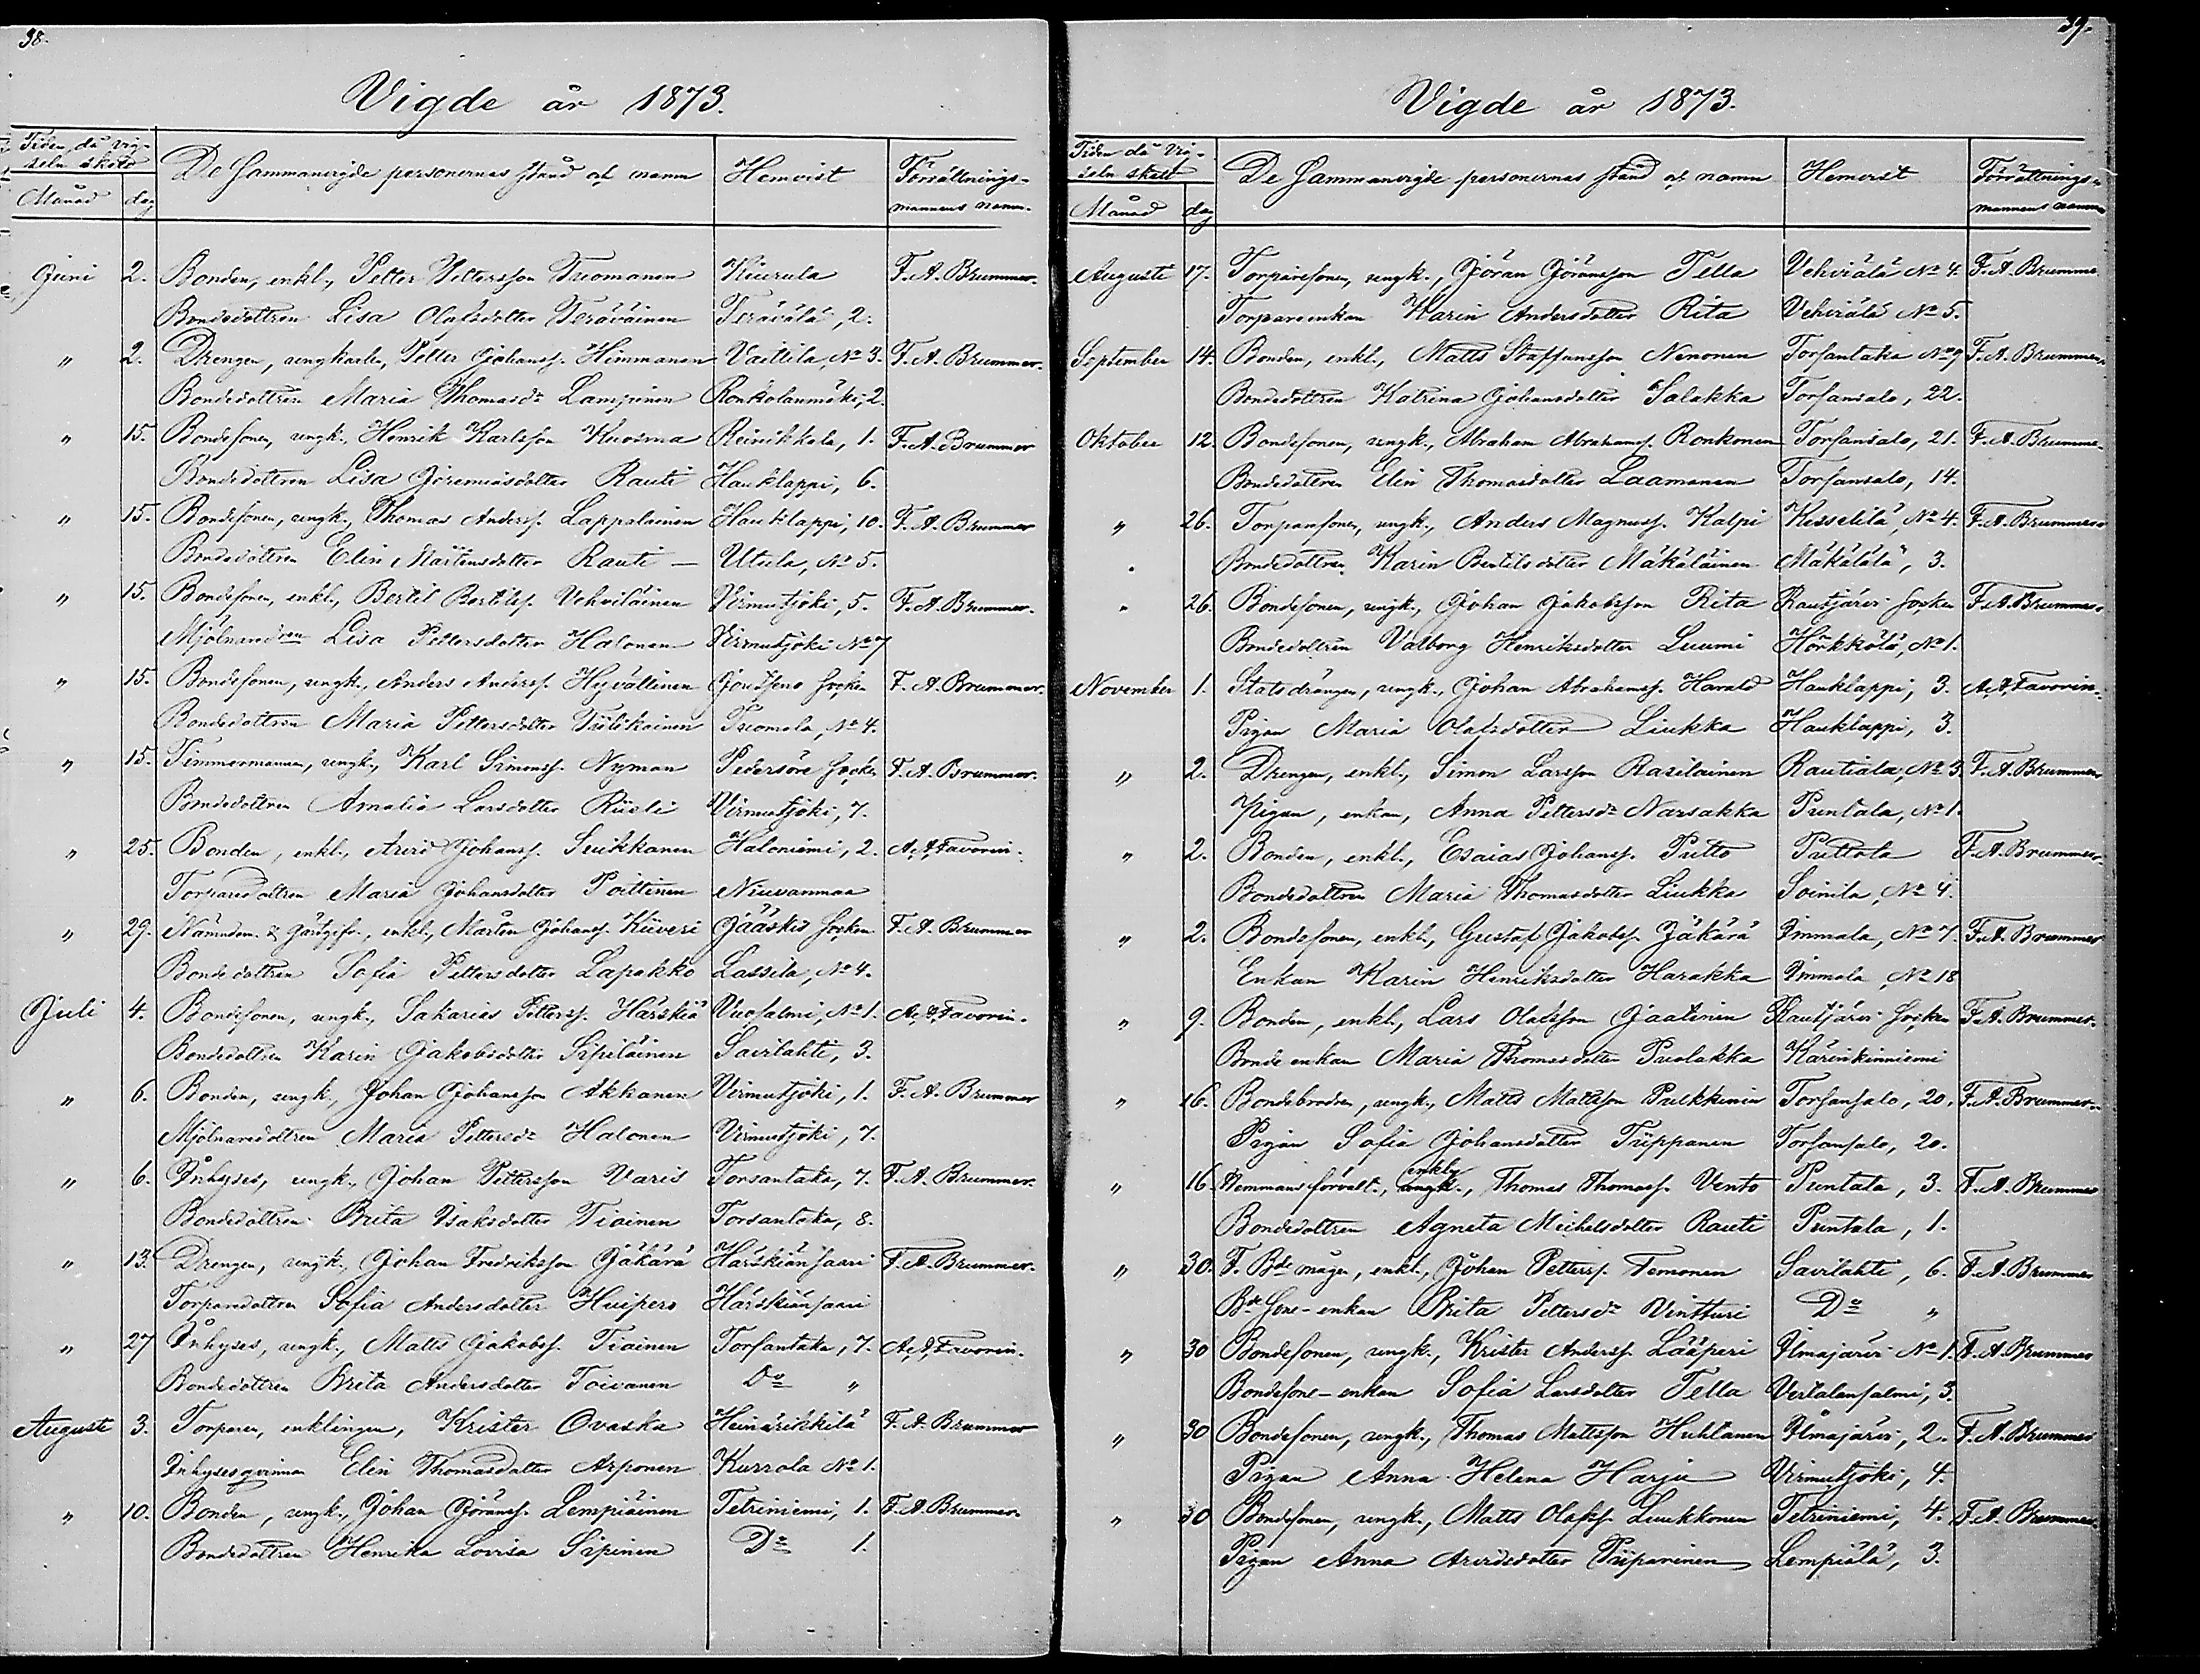 38.
Vigde år 1873.
Tiden, då vig-
seln skett
De sammanvigde personernas stånd och namn Hemvist Förrättnings-
mannens namn.
Månad dag
Juni 2. Bonden, enkl., Petter Pettersson Tuomanen Kiurula F. A. Brummer.
Bondedottren Lisa Olafsdotter Teräväinen Terävälä, 2.
" 2. Drengen, ungkarln, Petter Johanss. Himmanen Vaittila, No 3. F. A. Brummer.
Bondedottren Maria Thomasdr Lampinen Ronkolanmäki, 2.
" 15. Bondesonen, ungk., Henrik Karlsson Kuosma Reinikkala, 1. F. A. Brummer
Bondedottren Lisa Jeremiasdotter Rauti Hauklappi, 6.
" 15. Bondesonen, ungk., Thomas Anderss. Lappalainen Hauklappi, 10. F. A. Brummer
Bondedottren Elin Mårtensdotter Rauti — Utula, No 5.
" 15. Bondesonen, enkl., Bertil Bertilss. Vehviläinen Virmutjoki, 5. F. A. Brummer.
Mjölnaredren Lisa Pettersdotter Halonen Virmutjoki No 7
" 15. Bondesonen, ungk., Anders Anderss. Hyvättinen Joutseno socken F. A. Brummer.
Bondedottren Maria Pettersdotter Tylikäinen Tuomela, No 4.
" 15. Timmermannen, ungk., Karl Simonss. Nyman Pedersöre socken F. A. Brummer.
Bondedottren Amalia Larsdotter Rusti Virmutjoki, 7.
" 25. Bonden, enkl., Arvid Johanss. Suikkanen Haloniemi, 2. A. A. Favorin.
Torparedottren Maria Johansdotter Poittinen Niuvanmaa
" 29. Nämndem. & Gästgifv., enkl., Mårten Johanss. Kiiveri Jääskis socken F. A. Brummer
Bondedottren Sofia Pettersdotter Lapakko Lassila, No 4.
Juli 4. Bondesonen, ungk., Sakarias Petterss. Härskiä Vuosalmi, No 1. A. A. Favorin.
Bondedottren Karin Jakobsdotter Sipiläinen Savilahti, 3.
" 6. Bonden, ungk., Johan Johansson Akkanen Virmutjoki, 1. F. A. Brummer
Mjölnaredottren Maria Pettersdr Halonen Virmutjoki, 7.
" 6. Inhyses, ungk., Johan Pettersson Varis Torsantaka, 7. F. A. Brummer.
Bondedottren Brita Isaksdotter Tiainen Torsantaka, 8.
" 13. Drengen, ungk., Johan Fredriksson Jäkärä Härskiänsaari F. A. Brummer.
Torparedottren Sofia Andersdotter Huipero Härskiänsaari
" 27 Inhyses, ungk., Matts Jakobss. Tiainen Torsantaka, 7. A. A. Favorin.
Bondedottren Brita Andersdotter Toivanen Do "
Augusti 3. Torparen, enklingen, Krister Ovaska Heinärikkilä F. A. Brummer
Inhysesqvinnan Elin Thomasdotter Arponen Kurrola No 1.
" 10. Bonden, ungk., Johan Göranss. Lempiäinen Tetriniemi, 1. F. A. Brummer.
Bondedottren Henrika Lovisa Sipinen Do 1.
39.
Vigde år 1873.
Tiden då Vig-
seln skett
De Sammanvigde personernas stånd och namn Hemvist Förrättnings-
mannens namn
Månad dag
Augusti 17. Torparesonen, ungk., Göran Göransson Tella Vehviälä No 4. F. A. Brummer
Torpareenkan Karin Andersdotter Rita Vehviälä No 5.
September 14. Bonden, enkl., Matts Staffansson Nenonen Torsantaka No 9 F. A. Brummer.
Bondedottren Katrina Johansdotter Salakka Torsansalo, 22.
Oktober 12. Bondesonen, ungk., Abraham Abrahamss. Ronkonen Torsansalo, 21. F. A. Brummer
Bondedottren Elin Thomasdotter Laamanen Torsansalo, 14.
" 26. Torparesonen, ungk., Anders Magnuss. Kalpi Kesselilä, No 4. F. A. Brummer
Bondedottren Karin Bertilsdotter Mäkäläinen Mäkälälä, 3.
" 26. Bondesonen, ungk., Johan Jakobsson Rita Rautjärvi socken F. A. Brummer.
Bondedottren Valborg Henriksdotter Luumi Hörkkölä, No 1.
November 1. Statsdrängen, ungk., Johan Abrahamss. Harald Hauklappi, 3. A. A. Favorin.
Pigan Maria Olafsdotter Liukka Hauklappi, 3.
" 2. Drengen, enkl., Simon Larsson Rasilainen Rautiala, No 3. F. A. Brummer
Pigan, enkan, Anna Pettersdr Narsakka Puntala, No 1.
" 2. Bonden, enkl., Esaias Johanss. Putto Puttola F. A. Brummer.
Bondedottren Maria Thomasdotter Liukka Soinila, No 4.
" 2. Bondesonen, enkl., Gustaf Jakobss. Jäkärä Immala, No 7. F. A. Brummer
Enkan Karin Henriksdotter Harakka Immala, No 18
" 9. Bonden, enkl., Lars Olafsson Jaatinen Rautjärvi socken F. A. Brummer.
Bondeenkan Maria Thomasdotter Puolakka Kärinkinniemi
" 16. Bondebrodren, ungk., Matts Mattsson Pulkkinen Torsansalo, 20. F. A. Brummer.
Pigan Sofia Johansdotter Tiippanen Torsansalo, 20.
" 16. Hemmansförvalt., enkl., Thomas Thomass. Vento Puntala, 3. F. A. Brummer
Bondedottren Agneta Michelsdotter Rauti Puntala, 1.
" 30. F. Bde mågen, enkl., Johan Petterss. Temonen Savilahti, 6. F. A. Brummer
Bde sone-enkan Brita Pettersdr Vintturi Do "
" 30 Bondesonen, ungk., Krister Anderss. Lääperi Ilmajärvi No 1. F. A. Brummer
Bondesone-enkan Sofia Larsdotter Tella Vertalansalmi, 3.
" 30 Bondesonen, ungk., Thomas Mattsson Huhtanen Ilmajärvi, 2. F. A. Brummer
Pigan Anna Helena Harju Virmutjoki, 4.
" 30 Bondesonen, ungk., Matts Olafss. Luukkonen Tetriniemi, 4. F. A. Brummer.
Pigan Anna Arvidsdotter Piiparinen Lempiälä, 3.